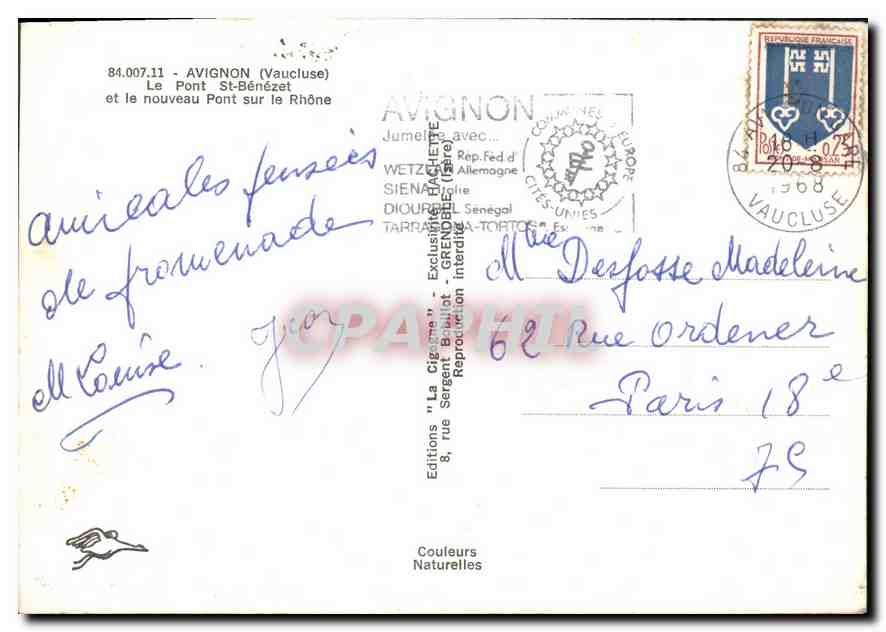 84.007.11 - AVIGNON (Vaucluse)
Le Pont St-Bénézet
et le nouveau Pont sur le Rhône
AVIGNON
Jumelée avec...
WETZLAR Rép. Féd. d'Allemagne
SIENA Italie
DIOURBEL Sénégal
TARRAGONA-TORTOSA Espagne
COMMUNES D'EUROPE
CITÉS-UNIES
REPUBLIQUE FRANÇAISE
Postes 0,25
MONT-DE-MARSAN
84 AVIGNON
18 H
20-8
1968
VAUCLUSE
amicales pensées
de promenade
M Louise
Jean
Mme Desfosse Madeleine
62 Rue Ordener
Paris 18e
75
Editions "La Cigogne" - Exclusivité HACHETTE
8, rue Sergent Bobillot - GRENOBLE (Isère)
Reproduction interdite
Couleurs
Naturelles
CPAPHIL